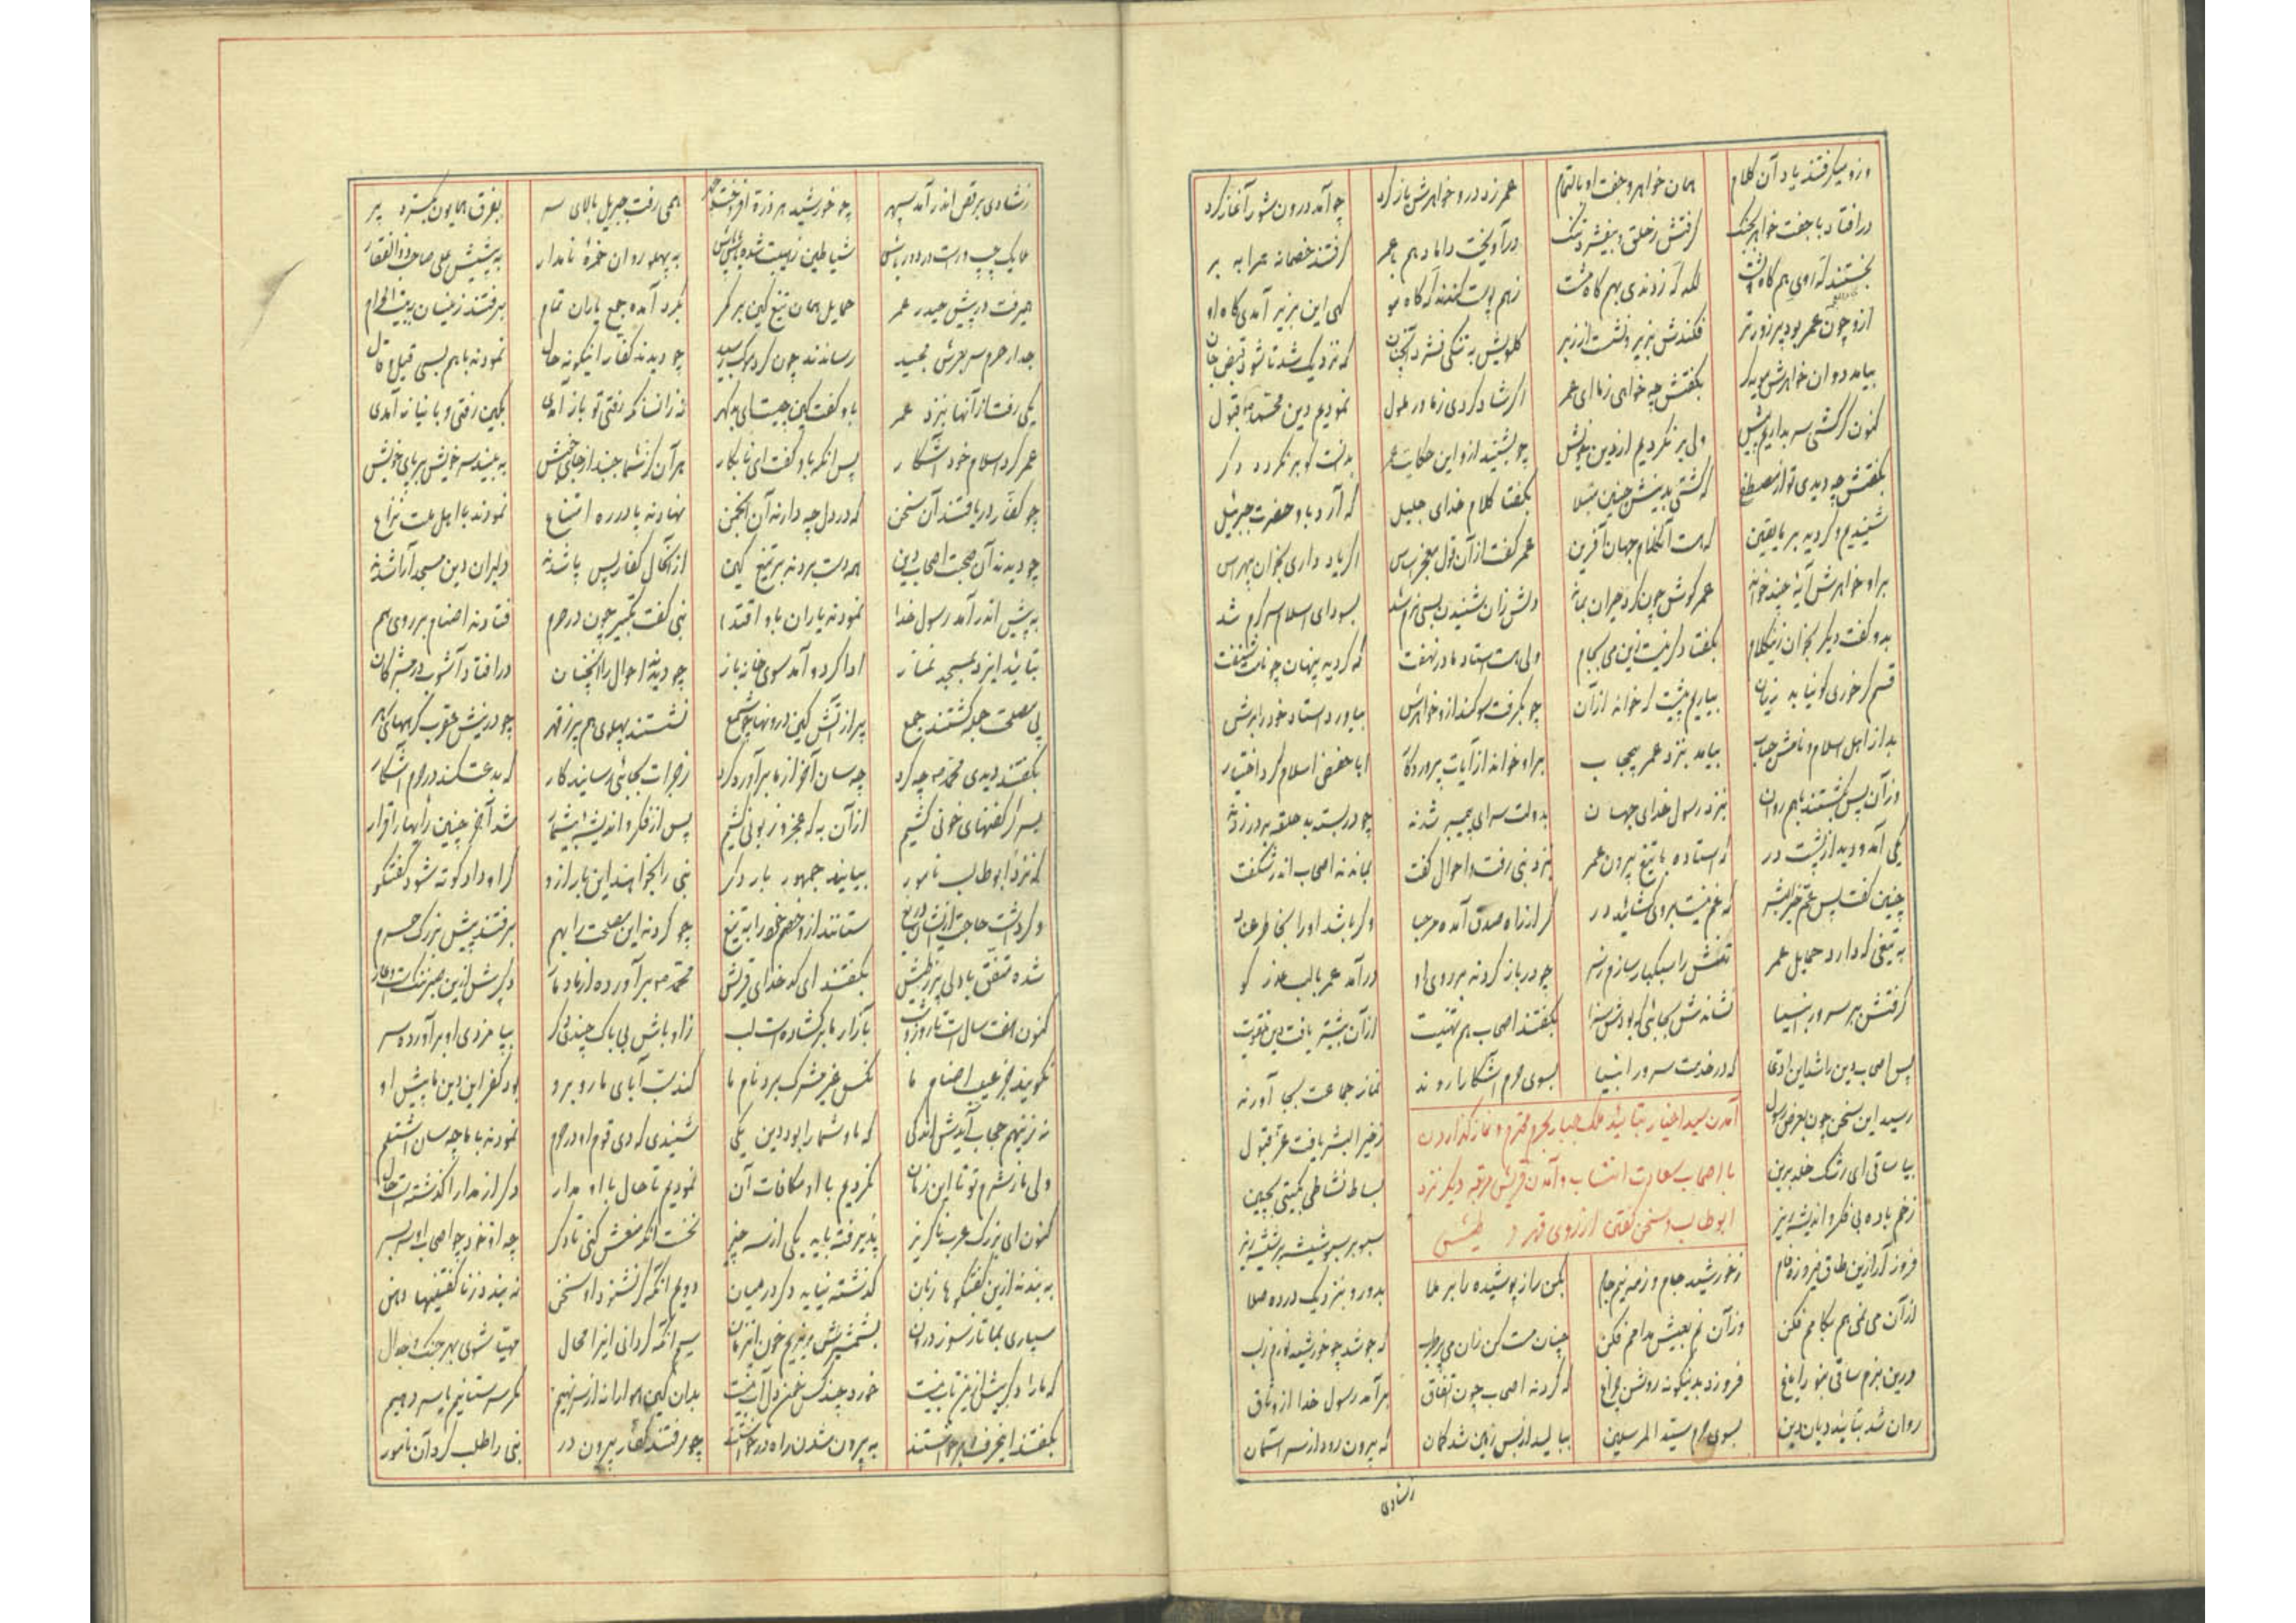 وزو میگرفتند یاد آن کلام همان خواهر و جفت او بالتمام عمر زد در و خواهرش باز کرد چو آمد درون شور آغاز کرد
در افتاد با جفت خواهر بجنگ گرفتش ز حلق و بیفشرد تنگ در آویخت داماد هم با عمر گرفتند خصمانه مر ا به بر
بخستند که روی هم گاه پشت لگد گه زدندی بهم گاه مشت ز هم پوست کندند که گاه مو گهی این بزیر آمدی گاه او
ازو چون عمر بود پر زورتر فکندش بزیر و نشست از زبر گلویش به تنگی فشرد آنچنان که نزدیک شد تا شود قبض جان
بیامد دوان خواهرش مویه گر بگفتش چه خواهی ز ما ای عمر اگر شاد گردی ز ما ور ملول نمودیم دین محمد قبول
کنون گر کشی سر بداریم پیش ولی بر نگردیم از دین خویش چو بشنید ازو این حکایت عمر بدانست کو بر نگردد دگر
بگفتش چه دیدی تو از مصطفی که گشتی بدینش چنین مبتلا بگفتا کلام خدای جلیل که آرد باو حضرت جبرئیل
شنیدیم و گردید بر ما یقین که هست آن کلام جهان آفرین عمر گفت از آن قول معجز اساس اگر یاد داری بخوان بی هراس
بر او خواهرش آیه چند خواند عمر گوش چون کرد حیران بماند دلش زان شنیدن بسی نرم شد بسودای اسلام سرگرم شد
بدو گفت دیگر بخوان زین کلام بگفتا دگر نیست این می بجام ولی هست استاد ما در نهفت که گردید پنهان چو نامت شنفت
قسم گر خوری کو نیابد زیان بیاریم پیشت که خواند از آن چو بگرفت سوگند ازو خواهرش بیاورد استاد خود را برش
بد از اهل اسلام و نامش خباب بیامد بنزد عمر بی حجاب بر او خواند از آیات پروردگار ابا حفص اسلام کرد اختیار
وز آن پس بگشتند با هم روان بنزد رسول خدای جهان بدولت سرای پیمبر شدند چو در بسته بد حلقه بر در زدند
یکی آمد و دید از پشت در که استاده با تیغ بیرون عمر بنزد نبی رفت و احوال گفت بماندند اصحاب اندر شگفت
چنین گفت پس عم خیر البشر که غم نیست بر وی گشائید در گر از راه صدق آمده مرحبا و گر باشد او را بخاطر دغا
به تیغی که دارد حمایل عمر تنش را سبکبار سازم ز سر چو در باز کردند بر روی او در آمد عمر با لب عذر گو
گرفتش ببر سرور انبیا نشاندش بجائی که بودش سزا بگفتند اصحاب هم تهنیت از آن بیشتر یافت دین تقویت
پس اصحاب دین را شد این ادعا که در خدمت سرور انبیا بسوی حرم آشکارا روند نماز جماعت بجا آورند
رسید این سخن چون بعرض رسول ز خیر البشر یافت عز قبول
آمدن سید اخیار بتائید ملک جبار بحرم محترم و نماز گذاردن
با اصحاب سعادت انتساب و آمدن قریش مرتبه دیگر نزد
ابوطالب و سخن گفتن از روی قهر و طیش
بیا ساقی ای رشک خلد برین بساط نشاطی بگیتی بچین
ز خم باده بی فکر و اندیشه ریز سبو بر سبو شیشه بر شیشه ریز
فروز آر ازین طاق فیروزه فام ز خورشید جام و ز مه نیم جام بکن راز پوشیده را بر ملا بدور و بنزدیک در ده صلا
از آن می نمی هم بکامم فکن وز آن نم بعیش مدامم فکن چنان مست کن زان می که جوشد چو خورشید نورم ز لب
درین بزم ساقی بنور ایاغ فروزد بدینگونه روشن چراغ که کردند اصحاب چون اتفاق بر آمد رسول خدا از وثاق
روان شد بتائید دیان دین بسوی حرم سید المرسلین ببالید از بس زمین شد گمان که بیرون رود از سر آسمان
ز شادی
ز شادی برقص اندر آمد سپهر چو خورشید هر ذره افروخت چهر همی رفت جبریل بالای سر بفرق همایون بگسترد پر
ملایک چپ و راست در دور باش شیاطین ز هیبت شده پاش پاش به پهلو روان حمزه نامدار به پیشش علی صاحب ذوالفقار
همیرفت در پیش حیدر عمر حمایل همان تیغ کین بر کمر بگرد آمده جمع یاران تمام برفتند زینسان به بیت الحرام
جدار حرم سر بعرش مجید رساندند چون گرد موکب رسید چو دیدند کفار اینگونه حال نمودند با هم بسی قیل و قال
یکی رفت از آنها بنزد عمر باو گفت کین چیست ای بد گهر نه زانسانکه رفتی تو باز آمدی بکین رفتی و با نیاز آمدی
عمر کرد اسلام خود آشکار پس آنگه باو گفت ای نابکار هر آن کز شما جنبد از جای خویش به بیند سر خویش بر پای خویش
چو کفار دریافتند آن سخن که در دل چه دارند آن انجمن نهادند پا در ره امتناع نمودند با اهل ملت نزاع
چو دیدند آن صحبت اصحاب دین همه دست بردند بر تیغ کین از آنحال کفار پس پا شدند دلیران دین مسجد آرا شدند
به پیش اندر آمد رسول خدا نمودند یاران باو اقتدا نبی گفت تکبیر چون در حرم فتادند اصنام بر روی هم
بتائید ایزد بمسجد نماز ادا کرد و آمد سوی خانه باز چو دیدند احوال را آنچنان در افتاد آشوب در مشرکان
پی مصلحت جمله گشتند جمع پر از آتش کین درونها چو شمع نشستند پهلوی هم پر ز قهر چو در نیش عقرب گرههای زهر
بگفتند دیدی محمد چه کرد چه سان آخر از ما بر آورد گرد ز جرأت بجائی رسانید کار که بدعت کند در حرم آشکار
بسر گر کفنهای خونی کشیم از آن به که عجز و زبونی کشیم پس از فکر و اندیشه بیشمار شد آخر چنین رأیها را قرار
که نزد ابوطالب نامور بیایند جمهور بار دگر نبی را بخواهند این بار ازو گر او داد کوته شود گفتگو
و گر داشت حاجت ازیشان دریغ ستانند از و خصم خود را به تیغ چو کردند این مصلحت را بهم برفتند پیش بزرگ حرم
شده متفق با دلی پر ز طیش بگفتند ای کدخدای قریش محمد بر آورده از ما دمار دگر پیش ازین صبر ننگست و عار
کنون هفت سال است تا روز و شب بآزار ما بر گشاده است لب ز اوباش بی باک چندی دگر بپا مردی او بر آورده سر
نگویند جز عیب اصنام ما بجز مشرک برد نام ما کند سب آبای ما رو برو بود کفر این دین ما پیش او
که ما و شما را بود دین یکی شنیدی که دی قوم او در حرم نمودند با ما چه سان اشتلم
ولی ما ز شرم تو تا این زمان نکردیم با او مکافات آن نمودیم تا حال با او مدار دگر از مدارا گذشته است حال
کنون ای بزرگ عرب ناگزیر پذیرفته باید یکی از سه چیز نخست آنکه منعش کنی تا دگر چه او خود چه اصحاب او سر بسر
به بندند ازین گفتگوها زبان گذشته نیاید دگر در میان دویم آنکه گر نشنود او سخن نه بندد ز ناگفتنیها دهن
سپاری بما تا ز سوز درون بشمشیرش بریزیم خون این زمان سیم آنکه گر دانی اینرا محال مهیا شوی بهر جنگ و جدال
که ما را دگر بیش ازین تاب نیست خورد چند کس خون دل آب نیست بدان کین هوا را نه از سر نهیم مگر سر ستانیم یا سر دهیم
بگفتند اینحرف و برخواستند به بیرون شدن راه در خواستند چو رفتند کفار بیرون در نبی را طلب کرد آن نامور